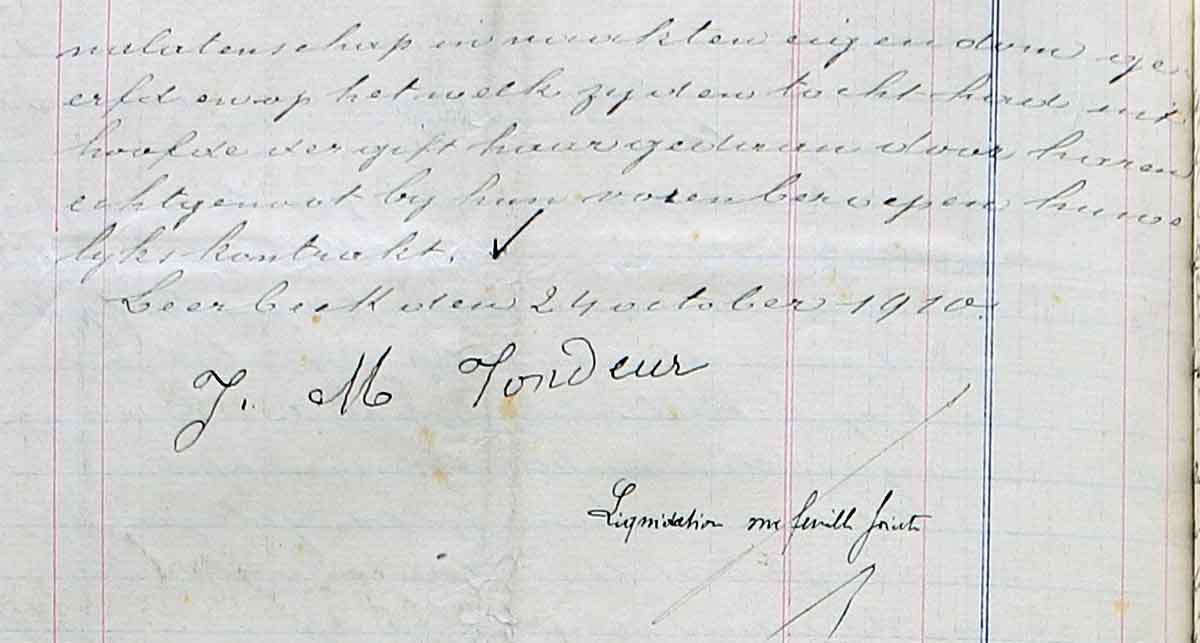 nalatenschap in naakten eigendom ge
erfd en op het welk zij den tocht had uit
hoofde der gift haar gedaan door haren
echtgenoot bij hun vorenberoepen huwe
lijks kontrakt.
Leerbeek den 24 october 1910.
J. M Tondeur
Liquidation sur feuille jointe